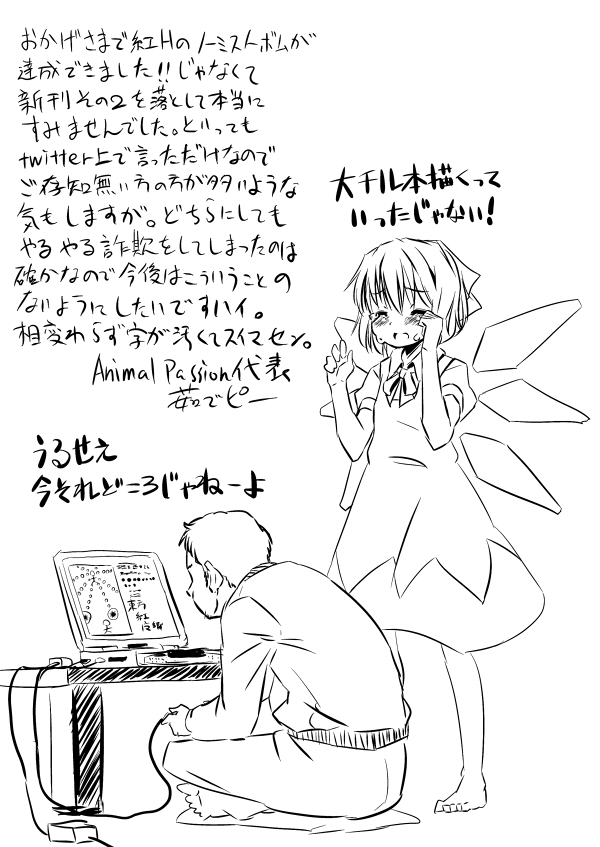 おかげさまで紅Hのノーミスノーボムが
達成できました!!じゃなくて
新刊その2を落として本当に
すみませんでした。といっても
twitter上で言っただけなので
ご存知無い方の方が多いような
気もしますが。どちらにしても
やるやる詐欺をしてしまったのは
確かなので今後はこういうことの
ないようにしたいですハイ。
相変わらず字が汚くてスイマセン。
Animal Passion代表
茹でピー
大チル本描くって
いったじゃない!
うるせえ
今それどころじゃねーよ
東方
紅